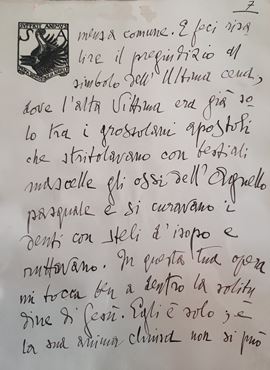 7
SVFFICIT ANIMVS
S A
mensa comune. E feci risa
lire il pregiudizio al
simbolo dell' Ultima cena,
dove l'alta Vittima era già so
lo tra i grossolani apostoli
che stritolavano con bestiali
mascelle gli ossi dell'Agnello
pasquale e si curavano i
denti con steli d'isopo e
ruttavano. In questa tua opera
mi tocca ben a dentro la solitu
dine di Gesù. Egli è solo; e
la sua anima chiusa non si può